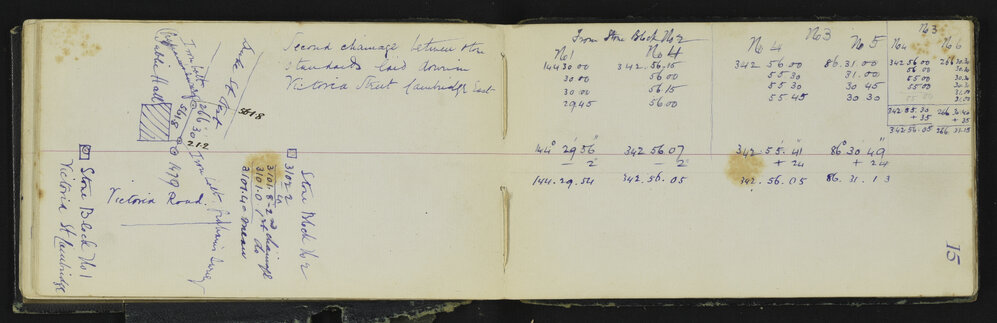 Second chainage between stone
standards laid down in
Victoria Street Cambridge East
Duke St
5618
Public Hall
Victoria Road
Stone Block No 1
Victoria St Cambridge
Stone Block No 2
3102.2
3101.8 - 2nd chainage
3101.0 1st do
3101.4 mean
From Stone Block No 2
No 1 No 4
144 30 00 342.56.15
30 00 56 00
30 00 56.15
29 45 56 00
144° 29' 56" 342 56 07
- 2" - 2"
144.29.54 342.56.05
No 3
No 4 No 5
342 56 00 86.31.00
55 30 31.00
55 30 30 45
55 45 30 30
342.55.41 86° 30 49"
+ 24 + 24
342.56.05 86.31.13
No 3
No 4 No 6
342 56 00
56 00
55 00
55 00
342 55.30 266 30.40
+ 35 + 35
342 56.05 266 31.15
15